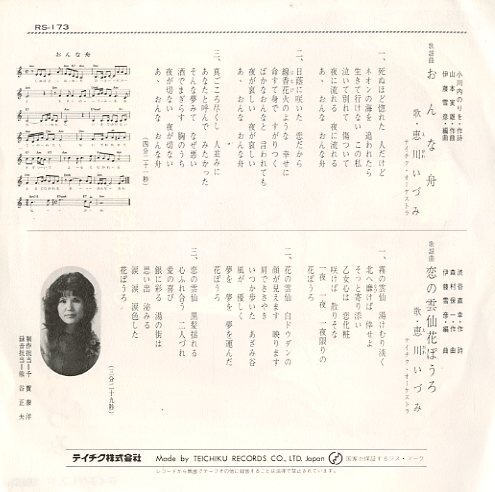 RS-173
おんな舟
歌謡曲
おんな舟
小川内のりを・作詩
山本幸雄・作曲
伊藤雪彦・編曲
歌・恵川いづみ
テイチク・オーケストラ
一、死ぬほど惚れた 人だけど
ネオンの海を 追われたら
生きて行けない この私
泣いて別れて 傷ついて
夜に流れる 夜に流れる
あゝ おんな おんな舟
二、日蔭に咲いた 恋だから
線香花火のような 幸せに
命すて身で すがりつく
ばかなおんなと 言われても
夜が哀しい 夜が哀しい
あゝ おんな おんな舟
三、真ごころ尽くし 人並みに
あなたと呼んで みたかった
そんな夢みて なぜ悪い
酒でまぎらす 胸のうち
夜が切ない 夜が切ない
あゝ おんな おんな舟
(四分二十一秒)
歌謡曲
恋の雲仙花ぼうろ
渋谷直幸・作詩
森村保一・作曲
伊藤雪彦・編曲
歌・恵川いづみ
テイチク・オーケストラ
一、霧の雲仙 湯けむり淡く
北へ磨けば 倖せよ
そっと寄り添い
乙女心は 恋化粧
咲けば 散りそな
一夜 一夜 一夜限りの
花ぼうろ
二、花の雲仙 白ドウダンの
顔が見えます 映ります
肩でささやき
いつか歩いた あざみ谷
風が 優しく
夢を 夢を 夢を運んだ
花ぼうろ
三、恋の雲仙 黒髪揺れる
心ふれ合う 二人づれ
愛の喜び
銀に彩る 湯の街は
思い出 泌みる
涙 涙 涙色した
花ぼうろ
(三分二十九秒)
制作担当=千賀泰洋
録音担当=熊谷正夫
テイチク株式会社 Made by TEICHIKU RECORDS CO., LTD. Japan 国家が保証するジス・マーク
レコードから無断でテープその他に録音することは法律で禁じられています。